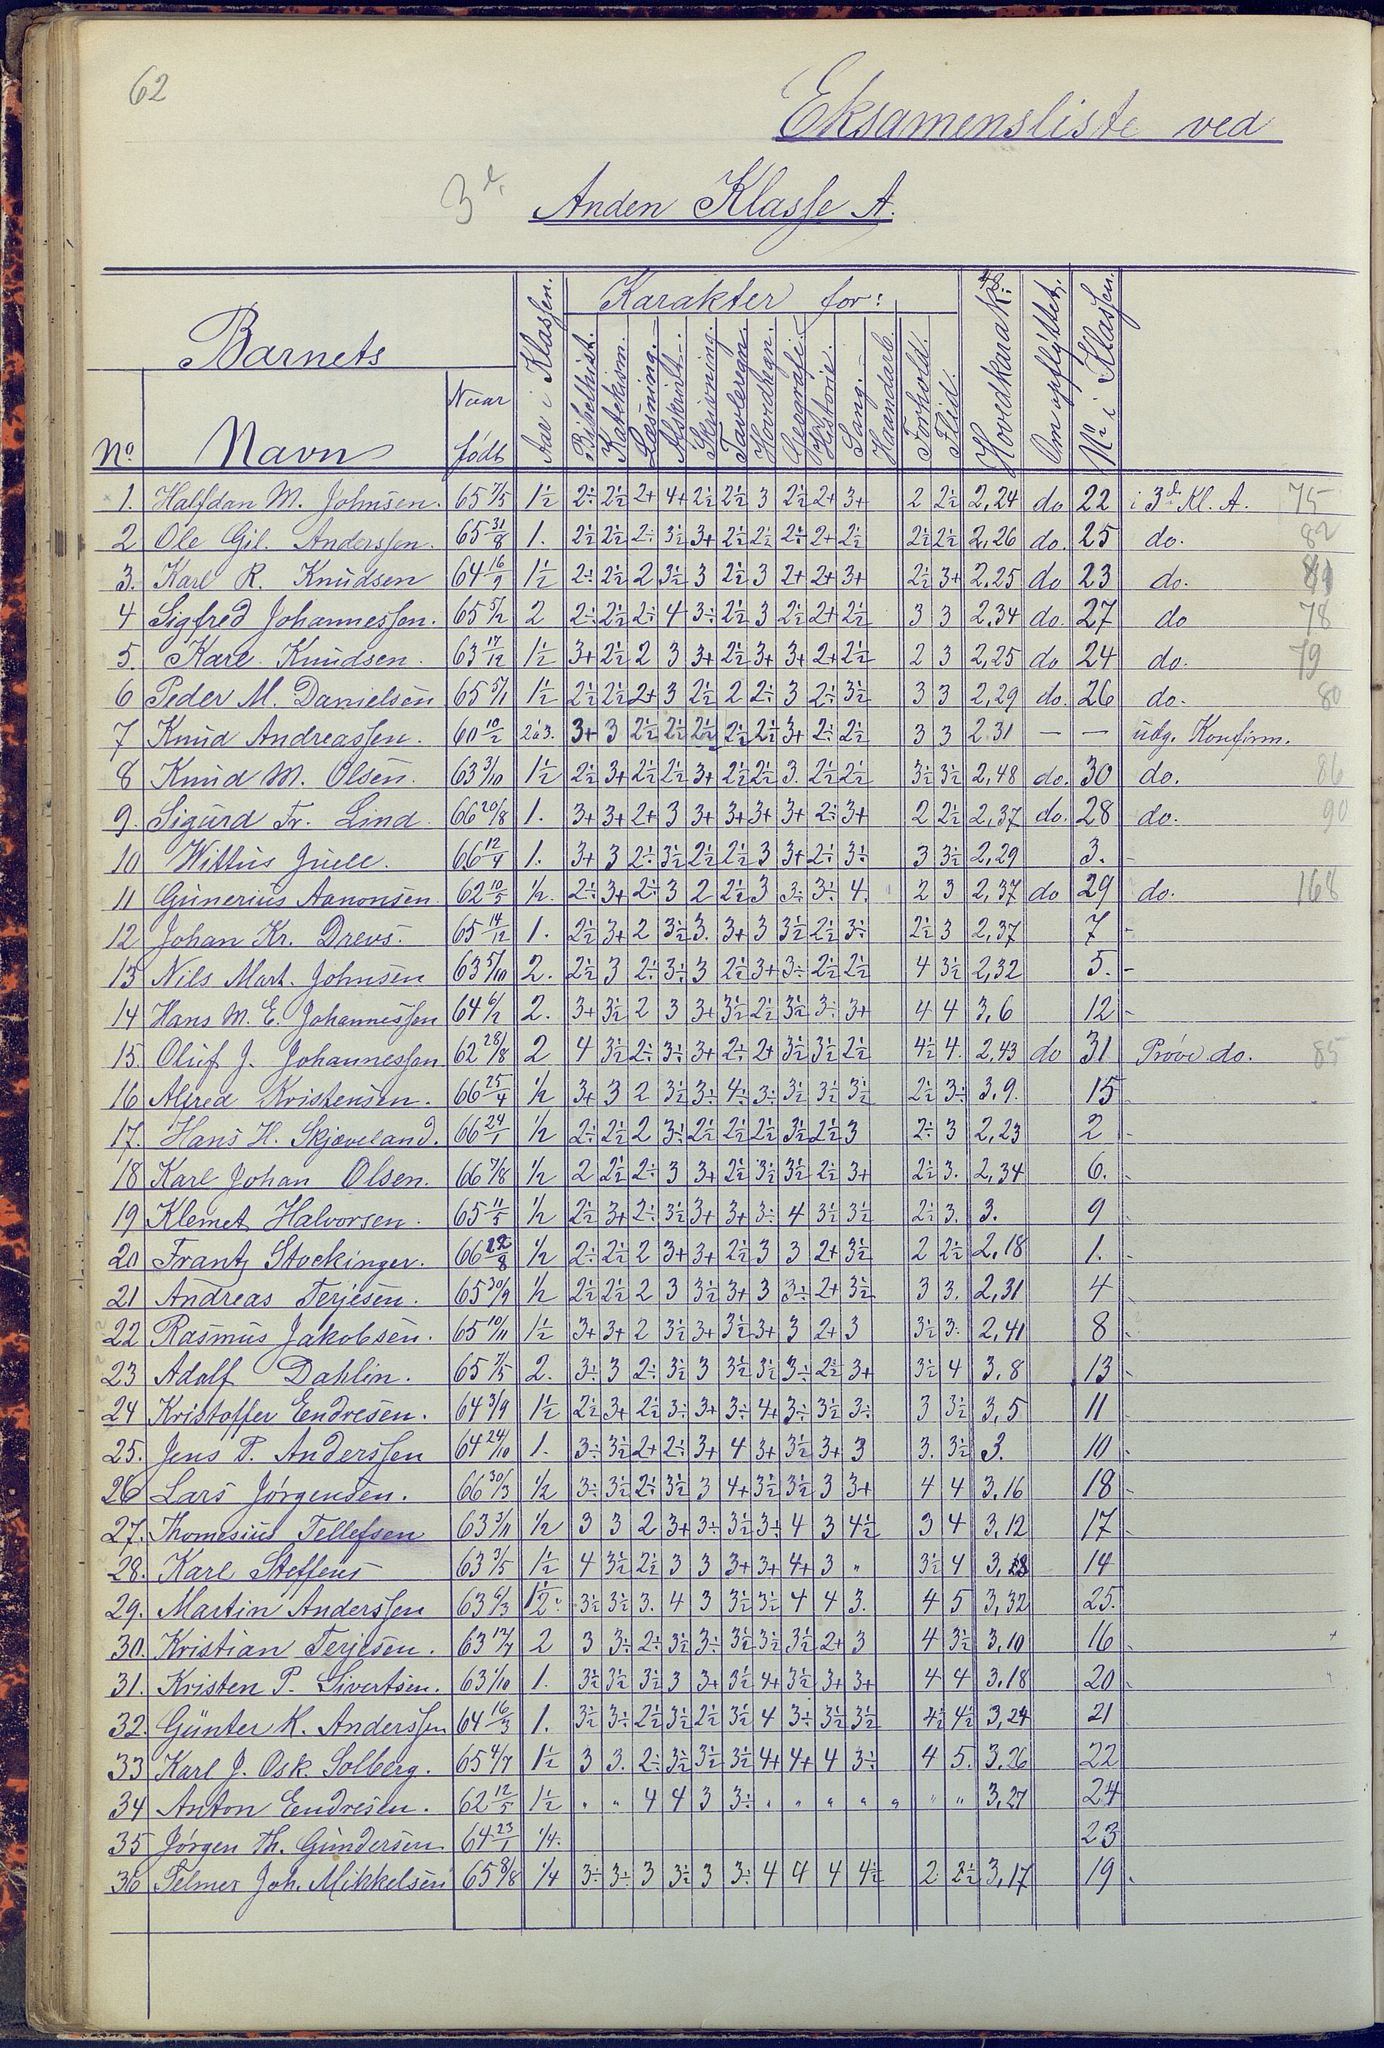 62
Eksamensliste ved
3de Anden Klasse A.
Karakter for:
Barnets
No. Navn Naar født Aar i Klassen. Bibelhist. Katekism. Læsning. Afskrivt. Skrivning. Tavleregn. Hovedregn. Geografi. Historie. Sang. Haandarb. Forhold. Flid. Hovedkarakt. Om opflyttet. No i Klassen.
1. Halfdan M. Johnsen. 65 7/5 1½ 2÷ 2½ 2+ 4+ 2½ 2½ 3 2½ 2+ 3+ 2 2½ 2,24 do 22 i 3de Kl. A. 75
2 Ole Gil. Anderssen. 65 31/8 1. 2½ 2½ 2÷ 3½ 3+ 2½ 2½ 2÷ 2+ 2½ 2½ 2½ 2,26 do. 25 do. 82
3. Karl R. Knudsen 64 16/9 1½ 2÷ 2½ 2 3½ 3 2½ 3 2+ 2+ 3+ 2½ 3+ 2,25 do 23 do. 81
4 Sigfred Johannessen. 65 5/2 2 2÷ 2½ 2÷ 4 3÷ 2½ 3 2½ 2+ 2½ 3 3 2,34 do. 27 do 78
5. Karl Knudsen. 63 17/12 1½ 3+ 2½ 2 3 3+ 2½ 3+ 3+ 2+ 2½ 2 3 2,25 do 24 do. 79
6 Peder M. Danielsen 65 5/1 1½ 2½ 2½ 2+ 3 2½ 2 2÷ 3 2÷ 3½ 3 3 2,29 do. 26 do. 80
7 Knud Andreassen. 60 10/2 2à3. 3+ 3 2½ 2½ 2½ 2½ 2½ 3+ 2÷ 2½ 3 3 2.31 — — udg. Konfirm.
8 Knud M. Olsen. 63 3/10 1½ 2½ 3+ 2½ 2½ 3+ 2½ 2½ 3. 2½ 2½ 3½ 3½ 2,48 do. 30 do. 86
9. Sigurd Fr. Lind 66 20/8 1. 3+ 3+ 2+ 3 3+ 3+ 3+ 3+ 2÷ 3+ 2 2½ 2,37 do. 28 do. 90
10 Wittus Juell. 66 12/4 1. 3+ 3 2÷ 3½ 2½ 2½ 3 3+ 2÷ 3÷ 3 3½ 2,29 3. -
11 Gunerius Aanonsen. 62 10/5 ½. 2÷ 3+ 2÷ 3 2 2½ 3 3÷ 3÷ 4. 2 3 2,37 do 29 do. 168
12 Johan Kr. Drevs. 65 14/12 1. 2½ 3+ 2 3½ 3. 3+ 3 3½ 2½ 3÷ 2½ 3 2,37 7 -
13 Nils Mart. Johnsen 63 5/10 2. 2½ 3 2÷ 3÷ 3 2½ 3+ 3÷ 2½ 2½ 4 3½ 2,32 5. -
14 Hans M. E. Johannessen 64 6/2 2. 3+ 3½ 2 3 3+ 3½ 2½ 3½ 3÷ 3+ 4 4 3,6 12 -
15. Oluf J. Johannessen 62 28/8 2 4 3½ 2÷ 3÷ 3+ 2÷ 2+ 3½ 3½ 2½ 4½ 4. 2,43 do 31 Prøve do. 85
16 Alfred Kristensen. 66 25/4 ½ 3+ 3 2 3½ 3÷ 4÷ 3÷ 3½ 3½ 3½ 2½ 3÷ 3,9. 15
17. Hans H. Skjæveland. 66 24/1 ½ 2÷ 2½ 2 3÷ 2½ 2½ 2½ 3½ 2½ 3 2÷ 3 2,23 2 -
18 Karl Johan Olsen. 66 7/8 ½ 2 2½ 2÷ 3 3+ 2½ 3½ 3½ 2½ 3+ 2½ 3. 2,34 6. -
19 Klemet Halvorsen. 65 11/5 ½ 2½ 3+ 2÷ 3½ 3+ 3+ 3÷ 4 3½ 3½ 2½ 3. 3. 9 -
20 Frantz Stockinger. 66 22/8 ½ 2÷ 2½ 2 3+ 3+ 2½ 3 3 2+ 3½ 2 2½ 2,18 1. -
21 Andreas Terjesen. 65 30/9 ½ 2½ 2½ 2 3 3½ 3+ 3 3÷ 2+ 3½ 3 3. 2,31 4 -
22 Rasmus Jakobsen. 65 10/11 1½ 3+ 3+ 2 3½ 3+ 3½ 3+ 3 2+ 3 3½ 3. 2,41 8 -
23 Adolf Dahlin. 65 7/5 2. 3÷ 3 2÷ 3½ 3 3½ 3½ 3÷ 2½ 3+ 3½ 4 3,8 13 -
24 Kristoffer Endresen. 64 3/9 1½ 2½ 3+ 2½ 3÷ 3+ 3÷ 4+ 3÷ 3½ 3÷ 3 3½ 3,5 11
25. Jens P. Anderssen 64 24/10 1. 3÷ 3½ 2+ 2÷ 3+ 4 3+ 3½ 3+ 3 3. 3½ 3. 10 -
26 Lars Jørgensen. 66 30/3 ½ 3÷ 3½ 2÷ 3½ 3 4+ 3½ 3½ 3 3+ 4 4 3,16 18 -
27. Thomesius Tellefsen 63 3/11 ½ 3 3 2 3+ 3÷ 3½ 3÷ 4 3 4½ 3 4 3,12 17 -
28. Karl Steffens 63 3/5 1½ 4 3½ 2½ 3 3 3+ 3+ 4+ 3 " 3½ 4 3, 14
29. Martin Anderssen 63 6/3 1½. 3½ 3½ 3. 4 3 3½ 3½ 4 4 3. 4 5 3,32 25.
30. Kristian Terjesen. 63 17/7 2 3 3÷ 2÷ 3½ 3÷ 3½ 3½ 3½ 2+ 3 4 3½ 3,10 16 -
31. Kristen P. Sivertsen. 63 1/10 1. 3½ 3½ 3½ 3 3+ 3½ 4+ 3½ 3+ 3+ 4 4 3,18 20 -
32. Günter K. Anderssen 64 16/3 1. 3½ 3÷ 2½ 3½ 2½ 3½ 4 3÷ 3½ 3½ 4½ 4½ 3,24 21
33 Karl J. Osk. Solberg. 65 4/7 1½ 3 3. 2÷ 3½ 3½ 3½ 4+ 4+ 4 3÷ 4 5. 3.26 22
34 Anton Endresen. 62 12/5 1½ " " 4 4 3 3÷ " " " " " " " 3,27 24
35 Jørgen Th. Gundersen 64 23/1 ¼. 23
36 Telmer Joh. Mikkelsen 65 8/8 ¼ 3÷ 3÷ 3 3½ 3 3÷ 4 4 4 4½ 2 2½ 3,17 19 -